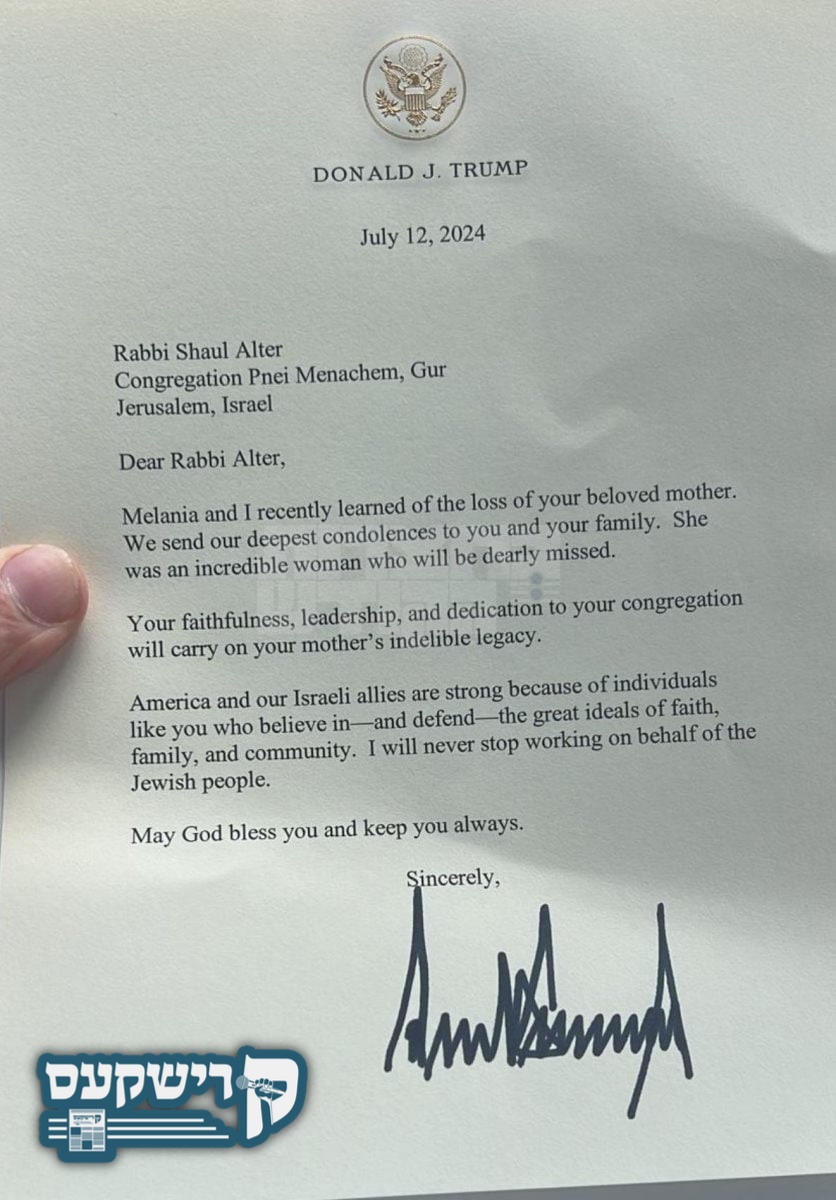 DONALD J. TRUMP
July 12, 2024
Rabbi Shaul Alter
Congregation Pnei Menachem, Gur
Jerusalem, Israel
Dear Rabbi Alter,
Melania and I recently learned of the loss of your beloved mother.
We send our deepest condolences to you and your family.  She
was an incredible woman who will be dearly missed.
Your faithfulness, leadership, and dedication to your congregation
will carry on your mother’s indelible legacy.
America and our Israeli allies are strong because of individuals
like you who believe in—and defend—the great ideals of faith,
family, and community.  I will never stop working on behalf of the
Jewish people.
May God bless you and keep you always.
Sincerely,
קרישקעס